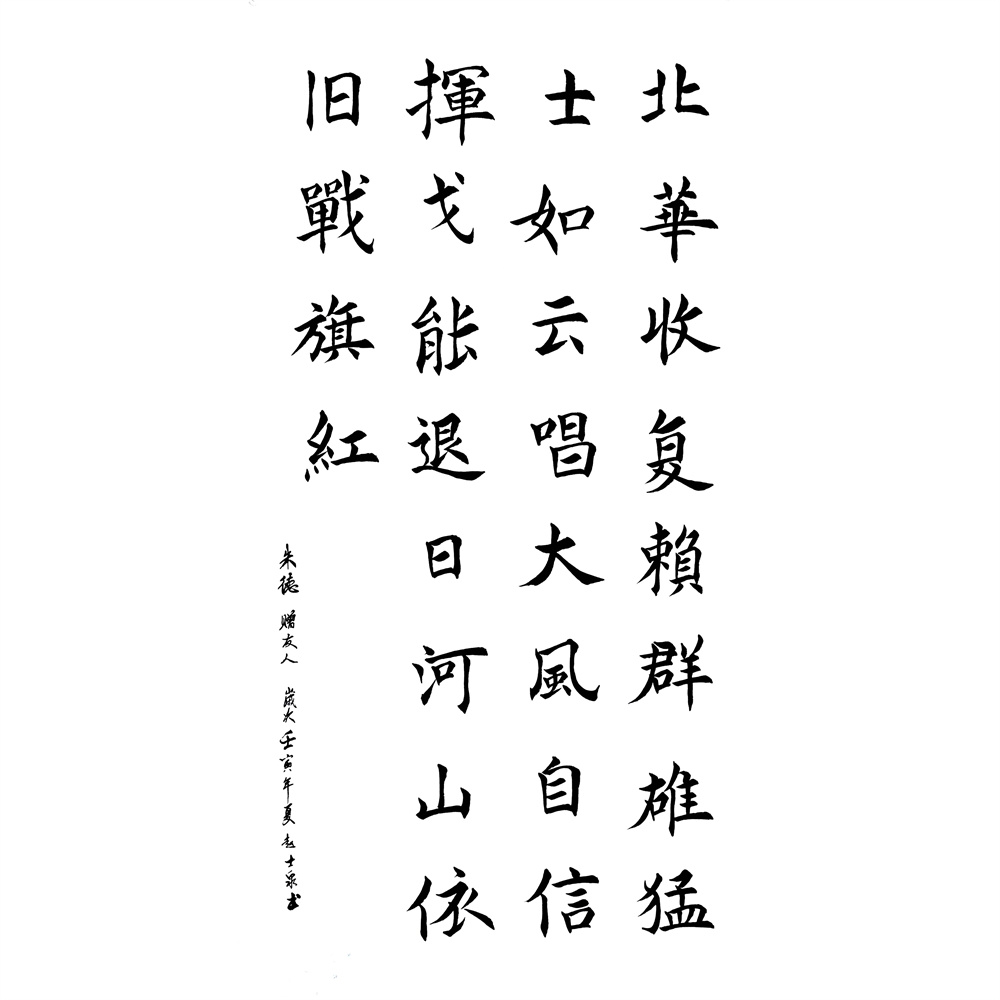 北華收复賴群雄猛
士如云唱大風自信
揮戈能退日河山依
旧戰旗紅
朱德 贈友人 歲次壬寅年夏 赵士泉书